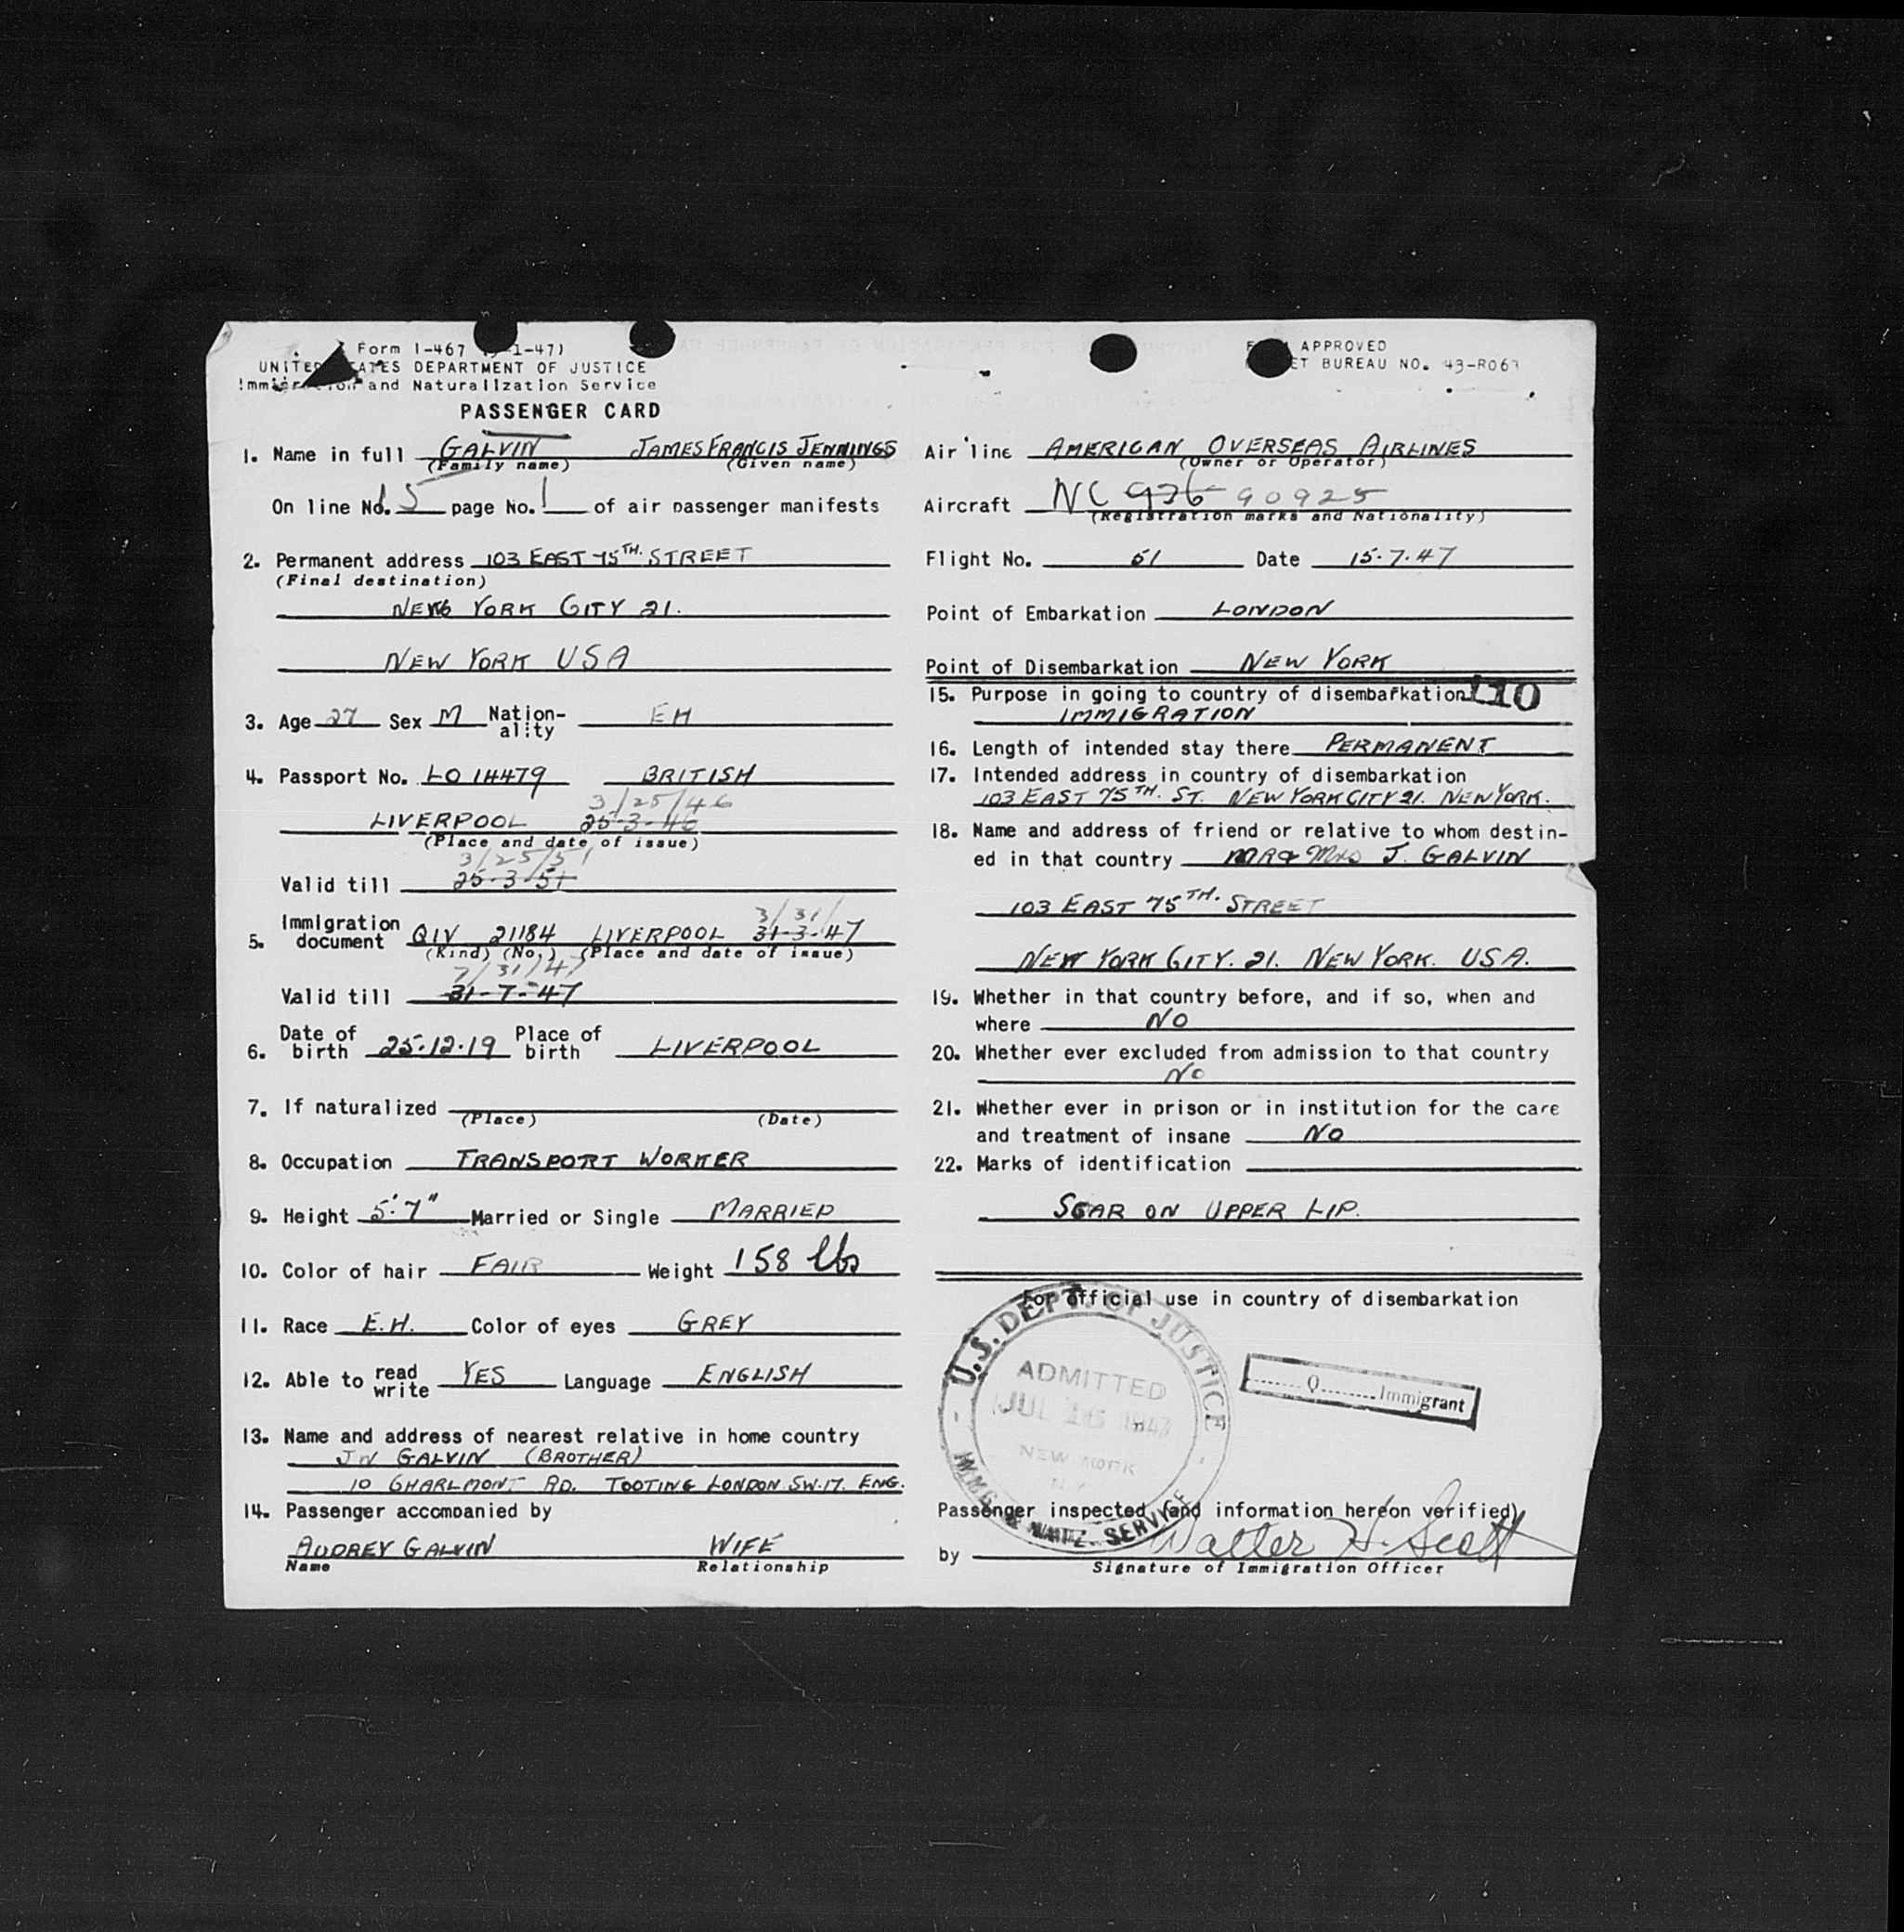 Form I-467 1-47)
UNITED STATES DEPARTMENT OF JUSTICE
Immigration and Naturalization Service
PASSENGER CARD
1. Name in full GALVIN JAMES FRANCIS JENNINGS
(Family name) (Given name)
On line No. 5 page No. 1 of air passenger manifests
2. Permanent address 103 EAST 75TH. STREET
(Final destination)
NEW YORK CITY 21.
NEW YORK USA
3. Age 27 Sex M Nation-ality EH
4. Passport No. LO 14479 BRITISH
3/25/46
LIVERPOOL 25-3-46
(Place and date of issue)
3/25/51
Valid till 25-3-51
3/31/
5. Immigration document QIV 21184 LIVERPOOL 31-3-47
(Kind) (No.) (Place and date of issue)
7/31/47
Valid till 31-7-47
6. Date of birth 25.12.19 Place of birth LIVERPOOL
7. If naturalized
(Place) (Date)
8. Occupation TRANSPORT WORKER
9. Height 5'.7" Married or Single MARRIED
10. Color of hair FAIR Weight 158 lbs
11. Race E.H. Color of eyes GREY
12. Able to read write YES Language ENGLISH
13. Name and address of nearest relative in home country
GALVIN (BROTHER)
10 CHARLMONT RD. TOOTING LONDON SW.17. ENG.
14. Passenger accompanied by
AUDREY GALVIN WIFE
Name Relationship
APPROVED
BUREAU NO. 43-R067
Air line AMERICAN OVERSEAS AIRLINES
(Owner or Operator)
Aircraft NC 976 90925
(Registration marks and Nationality)
Flight No. 51 Date 15.7.47
Point of Embarkation LONDON
Point of Disembarkation NEW YORK
15. Purpose in going to country of disembarkation 110
IMMIGRATION
16. Length of intended stay there PERMANENT
17. Intended address in country of disembarkation
103 EAST 75TH. ST. NEW YORK CITY 21. NEW YORK.
18. Name and address of friend or relative to whom destin-
ed in that country MR & Mrs J. GALVIN
103 EAST 75TH. STREET
NEW YORK CITY. 21. NEW YORK. USA.
19. Whether in that country before, and if so, when and
where NO
20. Whether ever excluded from admission to that country
NO
21. Whether ever in prison or in institution for the care
and treatment of insane NO
22. Marks of identification
SCAR ON UPPER LIP.
For official use in country of disembarkation
U.S. DEPT. OF JUSTICE
ADMITTED
JUL 16 1947
NEW YORK
N.Y.
IMMIG. & NATZ. SERVICE
Q Immigrant
Passenger inspected (and information hereon verified)
by Walter H. Scott
Signature of Immigration Officer